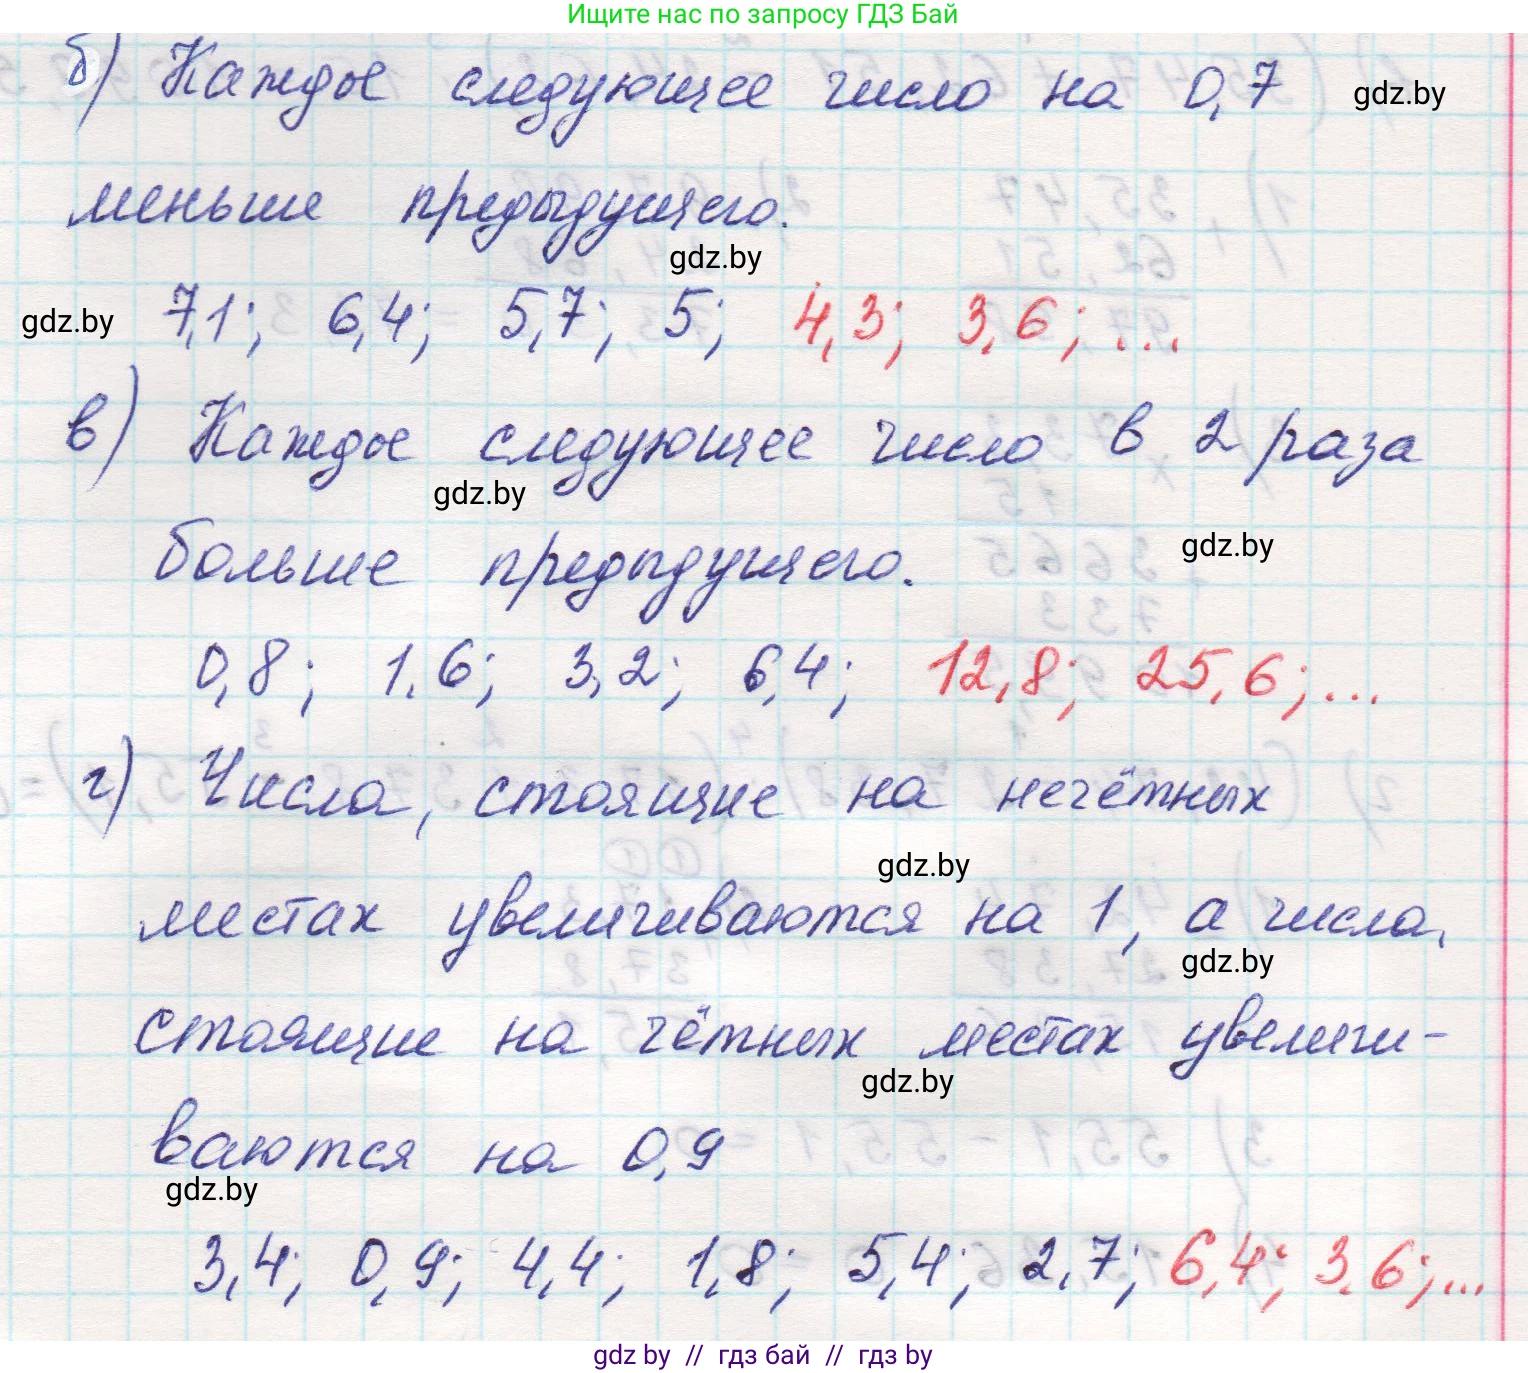 Ищите нас по запросу ГДЗ Бай
б) Каждое следующее число на 0,7 gdz.by
меньше предыдущего.
gdz.by
gdz.by 7,1; 6,4; 5,7; 5; 4,3; 3,6; ...
в) Каждое следующее число в 2 раза
gdz.by
больше предыдущего. gdz.by
0,8; 1,6; 3,2; 6,4; 12,8; 25,6; ...
г) Числа, стоящие на нечётных
gdz.by
местах увеличиваются на 1, а числа,
gdz.by
стоящие на чётных местах увеличи-
gdz.by
ваются на 0,9
gdz.by
3,4; 0,9; 4,4; 1,8; 5,4; 2,7; 6,4; 3,6; ...
gdz by // гдз бай // гдз by